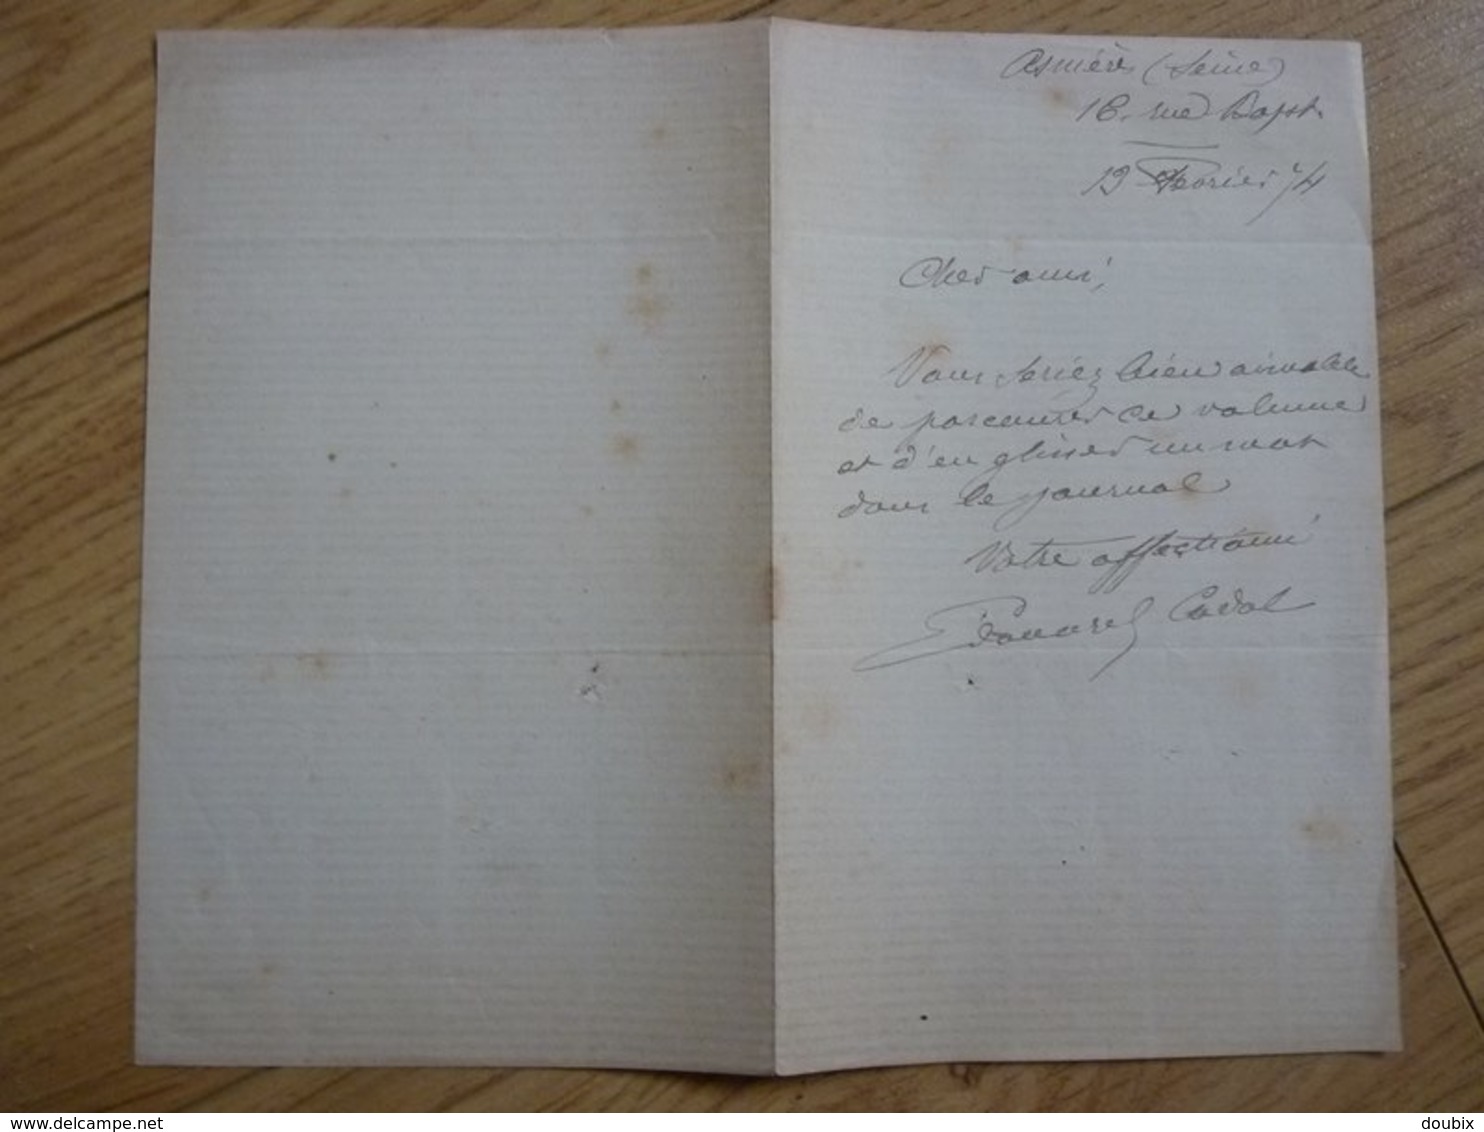 Asnières (Seine)
16, rue Bapst.
19 Février 74
Cher ami,
Vous seriez bien aimable
de parcourir ce volume
et d'en glisser un mot
dans le journal
Votre affectionné
Édouard Cadol
delcampe.net
doubix